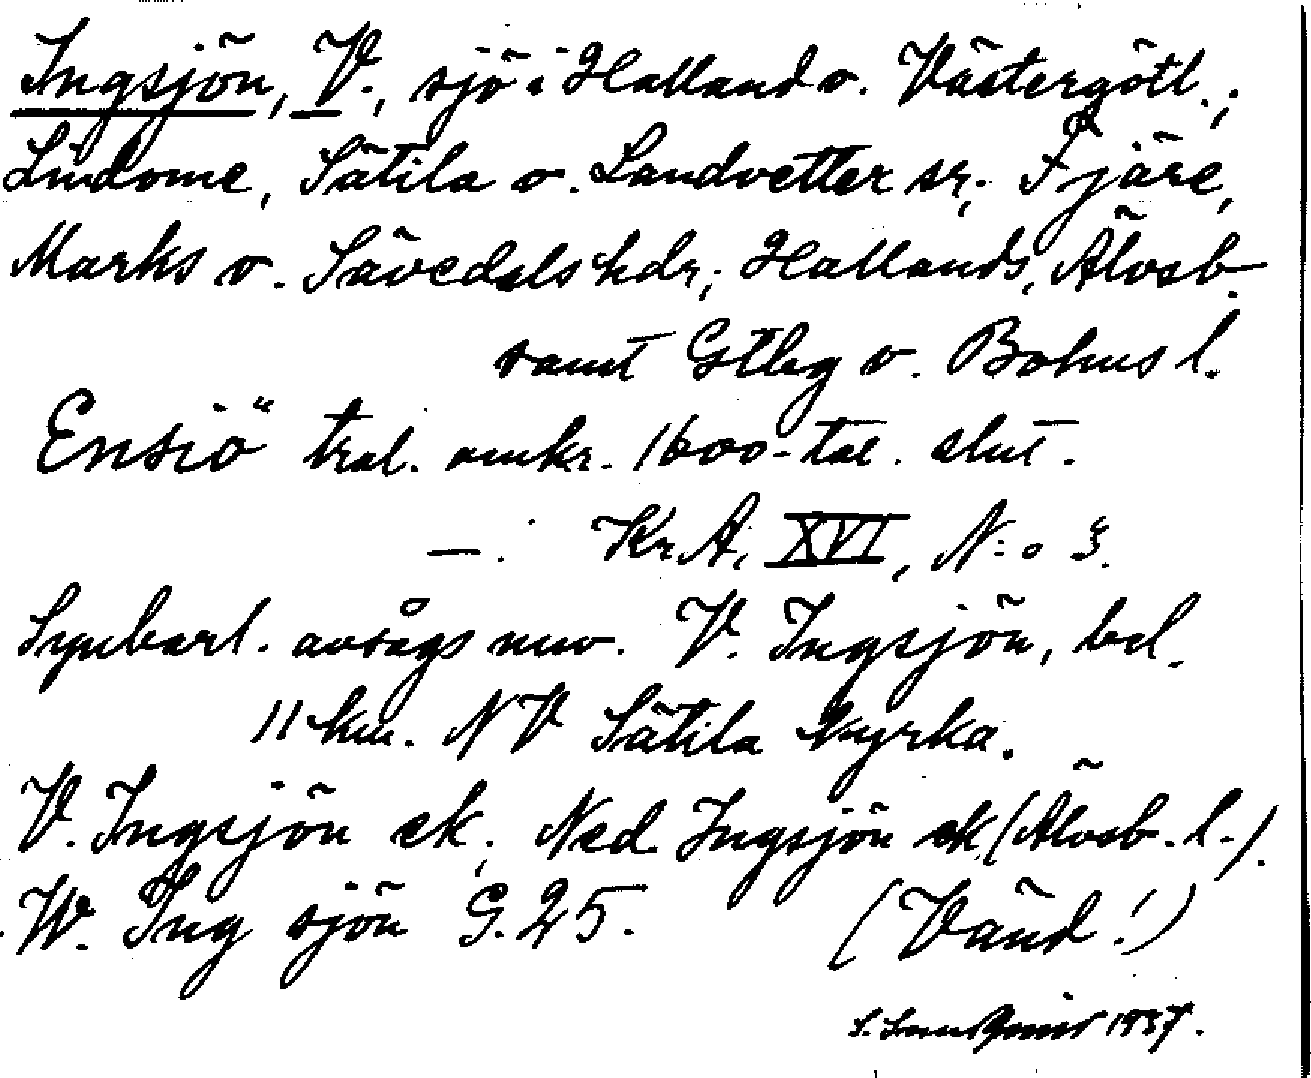 Ingsjön, V., sjö i Halland o. Västergötl.;
Lindome, Sätila o. Landvetter sr; Fjäre,
Marks o. Sävedals hdr; Hallands, Älvsb.
samt Gtbg o. Bohus l.
Ensiö" tral. omkr. 1600-tal. slut.
—. Kr. A. XVI, N:o 3.
Synbarl. avsågs nuv. V. Ingsjön, bel.
11 km. NV Sätila kyrka.
V. Ingsjön ek; Ned Ingsjön ek (Älvsb. l.).
W. Ing sjön G. 25. (Vänd!)
1937.